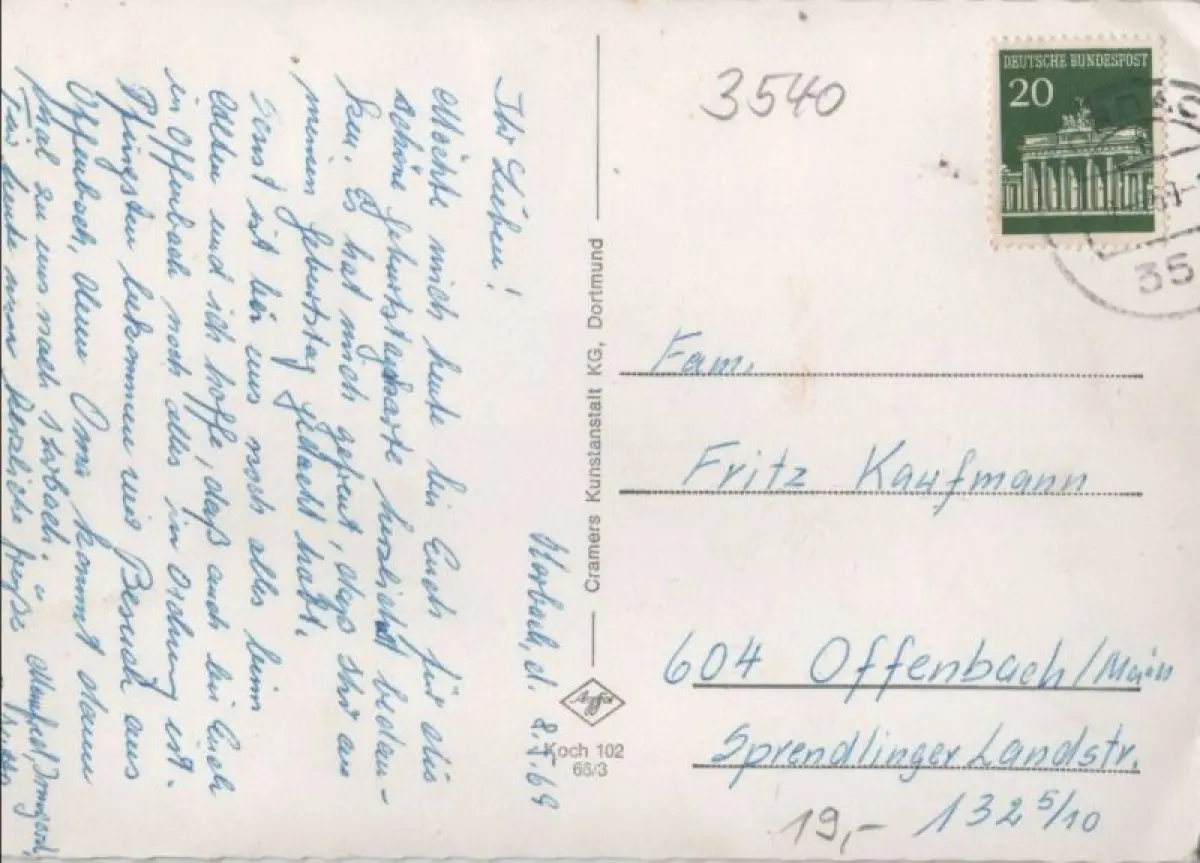 Korbach, d. 8.5.69
Ihr Lieben!
Möchte mich heute bei Euch für die
schöne Geburtstagskarte herzlichst bedan-
ken. Es hat mich gefreut, daß Ihr an
meinen Geburtstag gedacht habt.
Sonst ist bei uns noch alles beim
Alten und ich hoffe, daß auch bei Euch
in Offenbach noch alles in Ordnung ist.
Pfingsten bekommen wir Besuch aus
Offenbach, denn Oma kommt dann
mal zu uns nach Korbach.
Für heute nun herzliche Grüße
Manfred, Irmgard,
u. Jutta
Cramers Kunstanstalt KG, Dortmund
Agfa
Koch 102
66/3
3540
DEUTSCHE BUNDESPOST
20
35
Fam.
Fritz Kaufmann
604 Offenbach/Main
Sprendlinger Landstr.
132 5/10
19,-